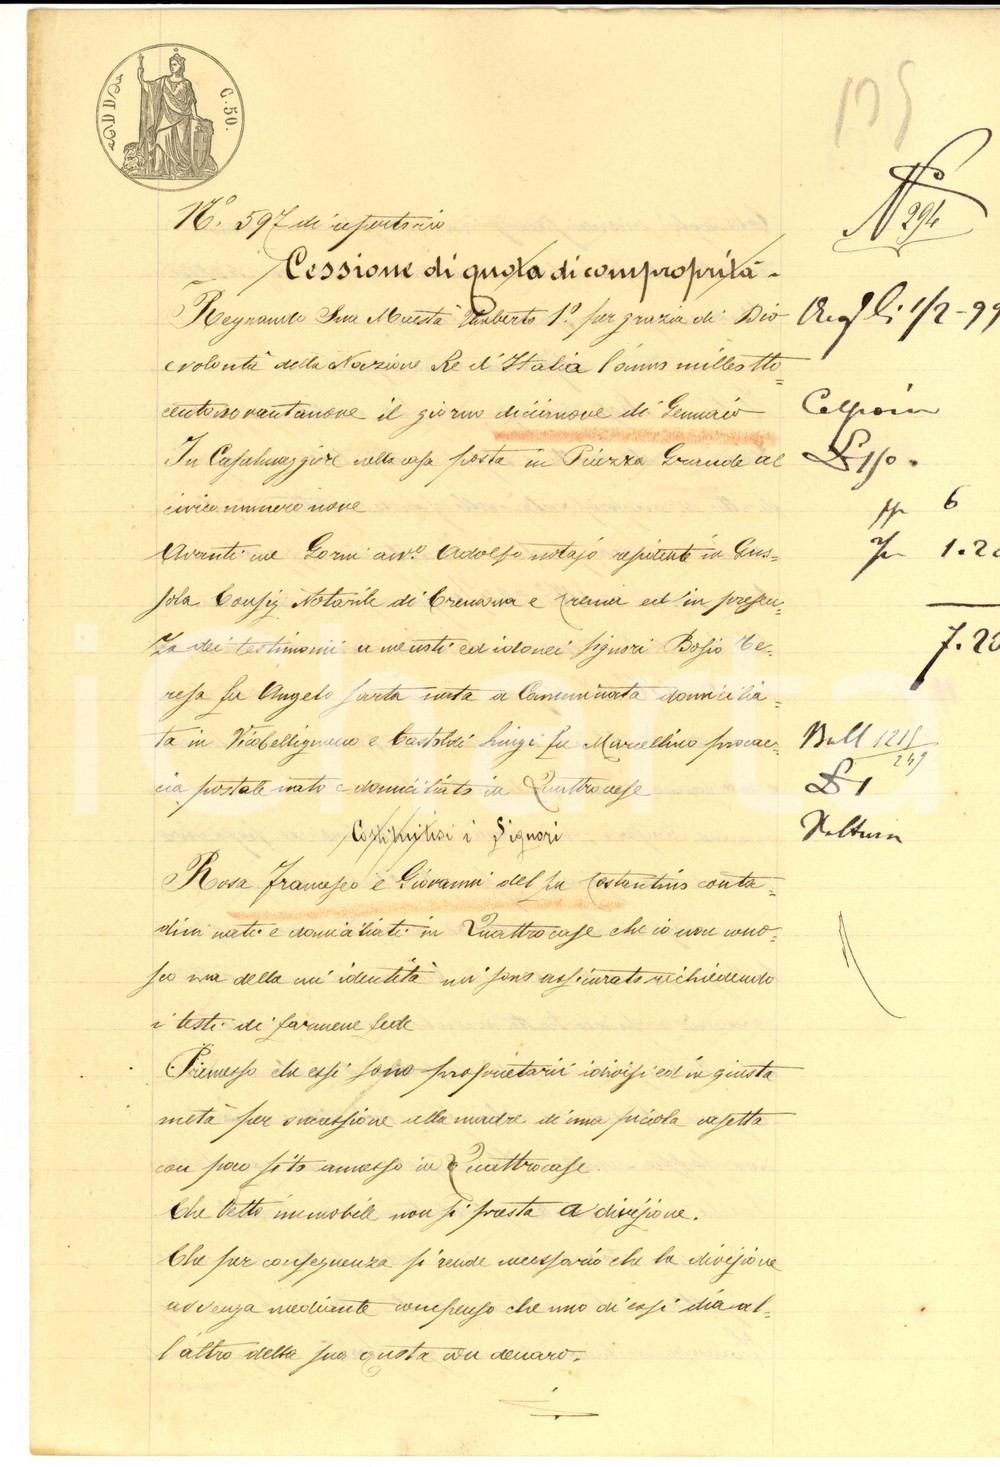 C. 50.
195
N° 294
N.° 597 di repertorio
Cessione di quota di comproprità -
Regnando Sua Maestà Umberto 1° per grazia di Dio
e volontà della Nazione Re d'Italia l'anno milleotto-
centonovantanove il giorno diciannove di Gennaio
In Casalmaggiore nella casa posta in Piazza Grande al
civico numero nove
Avanti me Gorni avv.° Adolfo notajo residente in Gus-
sola Consig Notarile di Cremona e Crema ed in presen-
za dei testimoni a me noti ed idonei signori Bosio Te-
resa fu Angelo sarta nata a Camminata domicilia-
ta in Vicobellignano e Castoldi Luigi fu Marcellino procac-
cia postale nato e domiciliato in Quattrocase
Costituitisi i Signori
Rosa Francesco e Giovanni del fu Costantino conta-
dini nati e domiciliati in Quattrocase che io non cono-
sco ma della cui identità mi sono assicurato richiedendo
i testi di farmene fede
Premesso che essi sono proprietarii indivisi ed in giusta
metà per successione alla madre di una piccola casetta
con poco sito annesso in Quattrocase.
Che detto immobile non si presta a divisione.
Che per conseguenza si rende necessario che la divisione
avvenga mediante compenso che uno di essi dia al-
l'altro della sua quota in denaro.
1/2-99
6
1.20
7.20
Boll 1215
249
Voltura